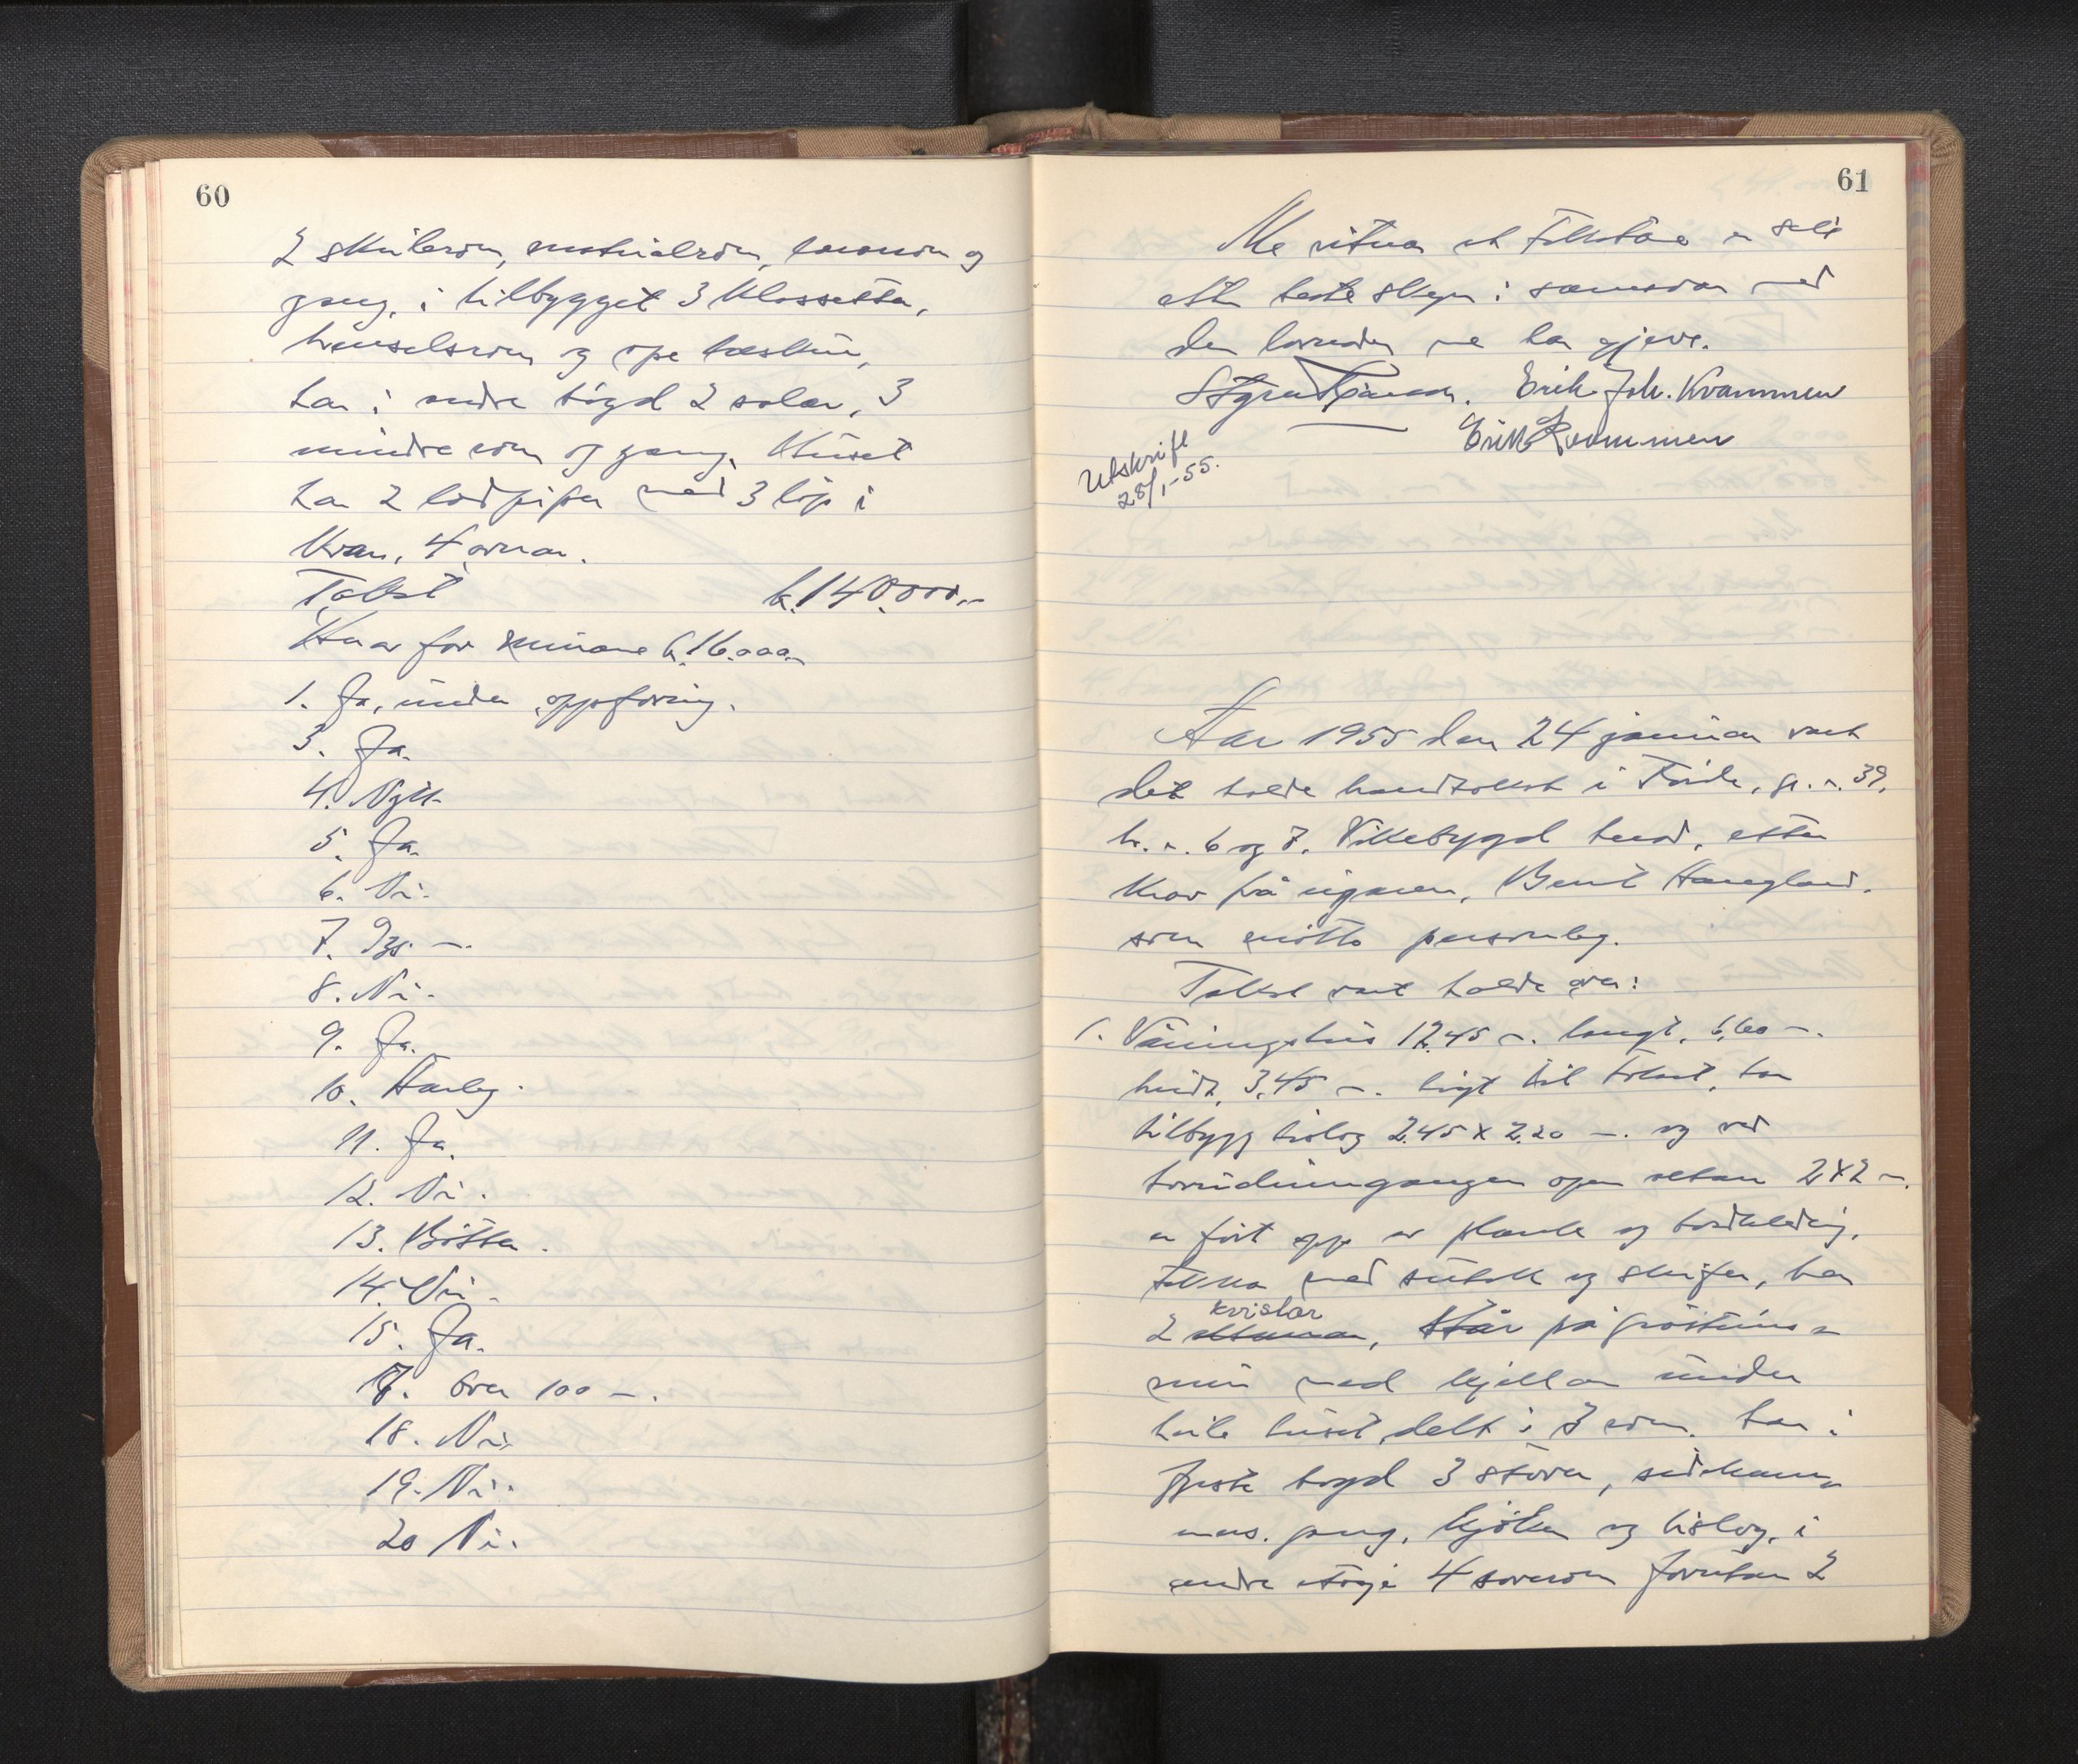 60
2 skulerom, materialrom, lærarrom og
gang, i tilbygget 3 klossetta,
brenselsrom og ope leskur,
har i andre högd 2 salar, 3
mindre rom og gang. Huset
har 2 lodpipa med 3 löp i
kvar, 4 omnar.
Takst kr. 140.000.-
Herav for murane kr. 16.000.-
1. Ja, under oppföring.
3. Ja.
4. Nytt.
5. Ja.
6. Nei.
7. 930 m.
8. Nei.
9. Ja.
10. Herleg.
11. Ja.
12. Nei.
13. Böttar.
14. Nei.
15. Ja.
17. Over 100 m.
18. Nei.
19. Nei.
20 Nei.
61
Me vitnar at takstane er sett
etter beste skyn i samsvar med
den lovnaden me har gjeve.
Erik Joh. Kvammen
Erik Kvammen
Utskrift
28/1-55.
Aar 1955 den 24 januar vart
det halde branntakst i Förde, gr. nr. 39,
br. nr. 6 og 7, Vikebygd herad, etter
krav frå eigaren, Bent Haugland.
som mötte personleg.
Takst vart halde over:
1. Våningshus 12,45 m. langt, 6,60 m.
breidt, 3,45 m. högt til taket, har
tilbygg bislag 2.45 x 2.20 m. og ved
hovudinngangen open altan 2x2 m.
er fört opp av plank og bordkledning,
tekka med sutak og skifer, har
kvistar
2 altanar, Står på gråsteins-
mur med kjellar under
heile huset, delt i 3 rom. har i
fyrste högd 3 stover, sidekam-
mers. gang, kjöken og bislag, i
andre etasje 4 soverom forutan 2